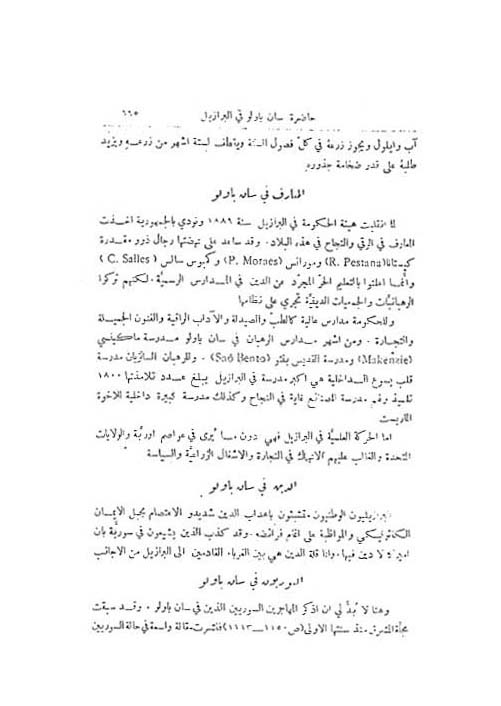 حاضرة سان باولو في البرازيل ٦٦٥
آب وايلول ويجوز زرعهُ في كلّ فصول السنة ويقطف لستة اشهر من زرعهِ ويزيد
طلبهُ على قدر ضخامة جذورهِ
المعارف في سان باولو
لما انقلبت هيئة الحكومة في البرازيل سنة ١٨٨٩ ونودي بالجمهورية اخذت
المعارف في الرقي والنجاح في هذه البلاد. وقد ساعد على نهضتها رجال ذوو مقدرة
كبستانا (R. Pestana) ومورائس (P. Moraes) وكمبوس سالس (C. Salles)
وانَّما اعلنوا بالتعليم الحرّ المجرَّد من الدين في المدارس الرسميَّة. لكنهم تركوا
الرهبانيَّات والجمعيات الدينيَّة تجري على نظامها
وللحكومة مدارس عالية كالطبّ والصيدلة والآداب الراقية والفنون الجميلة
والتجارة. ومن اشهر مدارس الرهبان في سان باولو مدرسة ماكينسي
(Makenzie) ومدرسة القديس بنتو (Saõ Bento). وللرهبان الساليزيان مدرسة
قلب يسوع الداخلية هي اكبر مدرسة في البرازيل يبلغ عدد تلامذتها ١٨٠٠
تلميذ وفيهم مدرسة الصنائع غاية في النجاح وكذلك مدرسة كبيرة داخلية للاخوة
المارِيست
اما الحركة العلميَّة في البرازيل فهي دون ما يُرى في عواصم اوربَّة والولايات
المتحدة والغالب عليهم الانهماك في التجارة والاشغال الزراعيَّة والسياسة
الدين في سان باولو
البرازيليون الوطنيون متشبثون باهداب الدين شديدو الاعتصام بحبل الايمان
الكاثوليكي والمواظبة على اتمام فرائضه. وقد كذب الذين يشيعون في سوريَّة بان
اميركا لا دين فيها. وانما قلة الدين هي بين الغرباء القادمين الى البرازيل من الاجانب
السوريون في سان باولو
وهنا لا بُدَّ لي ان اذكر المهاجرين السوريين الذين في سان باولو. وقد سبقت
مجلَّة المشرق منذ سنتها الاولى (ص ١١٥٠—١١١٣) فنشرت مقالة واسعة في حالة السوريين